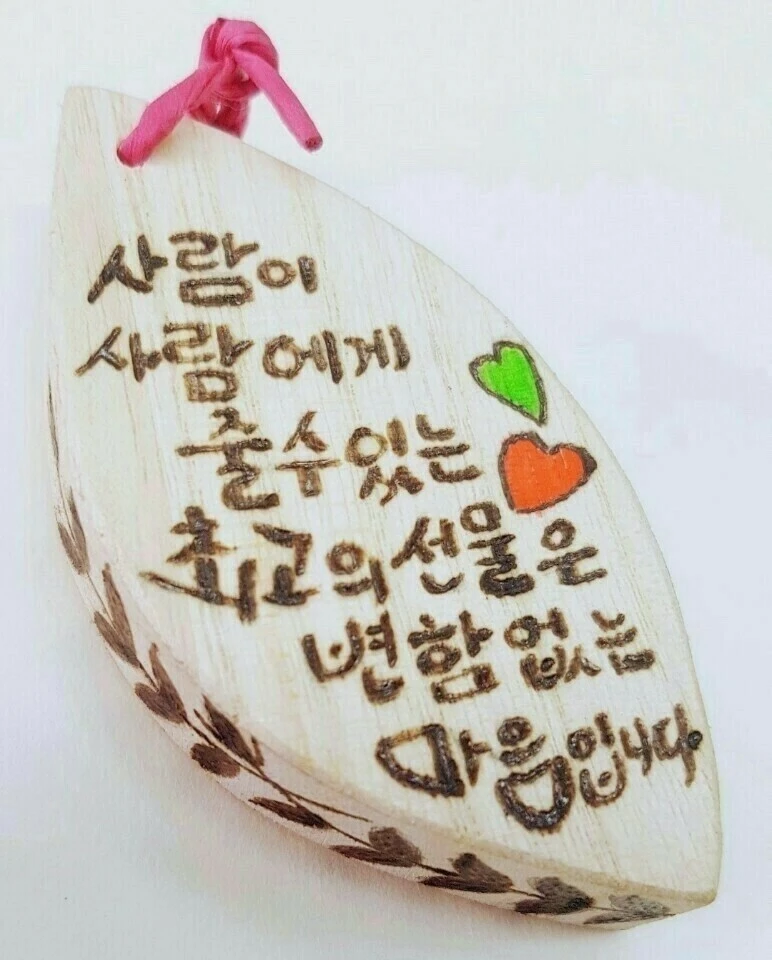 사람이
사람에게
줄수있는
최고의 선물은
변함없는
마음입니다.